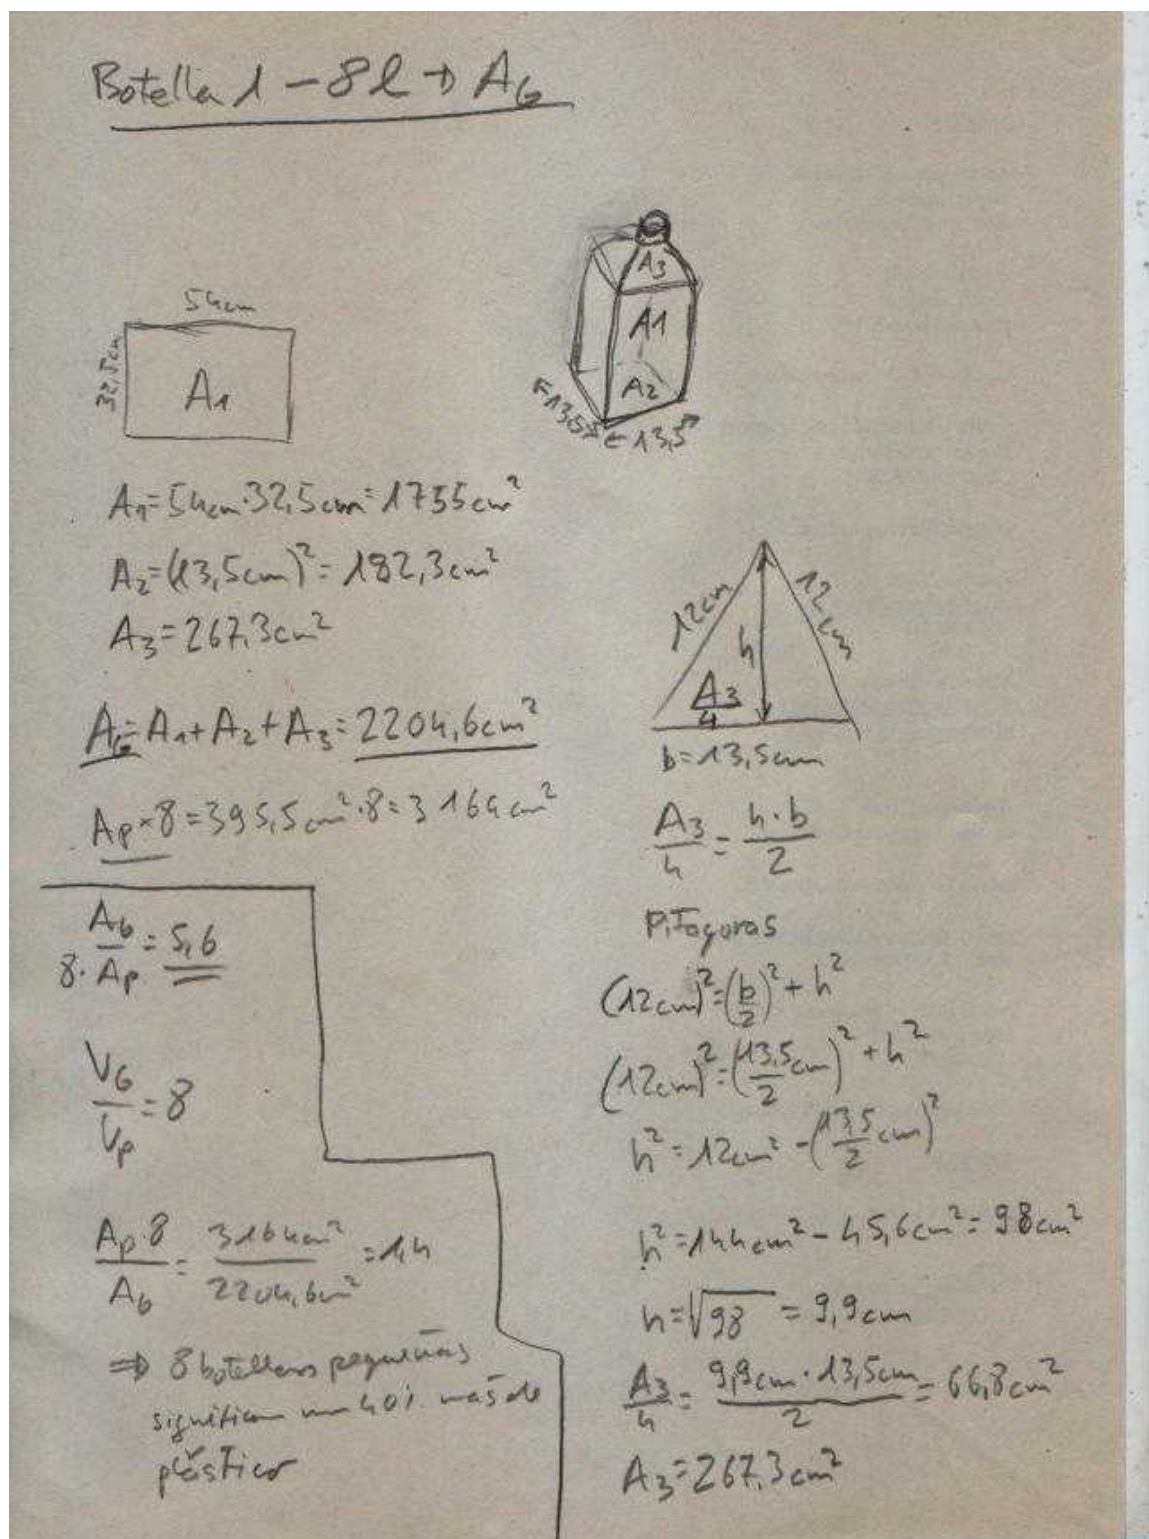 Botella 1 - 8l → A_G
54cm
32,5cm
A1
A3
A1
A2
←13,5→
←13,5→
A1=54cm·32,5cm=1755cm²
A2=(13,5cm)²=182,3cm²
A3=267,3cm²
A_G=A1+A2+A3=2204,6cm²
Ap×8=395,5cm²·8=3164cm²
8·A_G/Ap=5,6
V_G/Vp=8
Ap·8/A_G=3164cm²/2204,6cm²=1,4
⇒ 8 botellas pequeñas
significan un 40% más de
plástico
12cm
12cm
h
A3/4
b=13,5cm
A3/4=h·b/2
Pitagoras
(12cm)²=(b/2)²+h²
(12cm)²=(13,5/2cm)²+h²
h²=12cm²-(13,5/2cm)²
h²=144cm²-45,6cm²=98cm²
h=√98=9,9cm
A3/4=9,9cm·13,5cm/2=66,8cm²
A3=267,3cm²